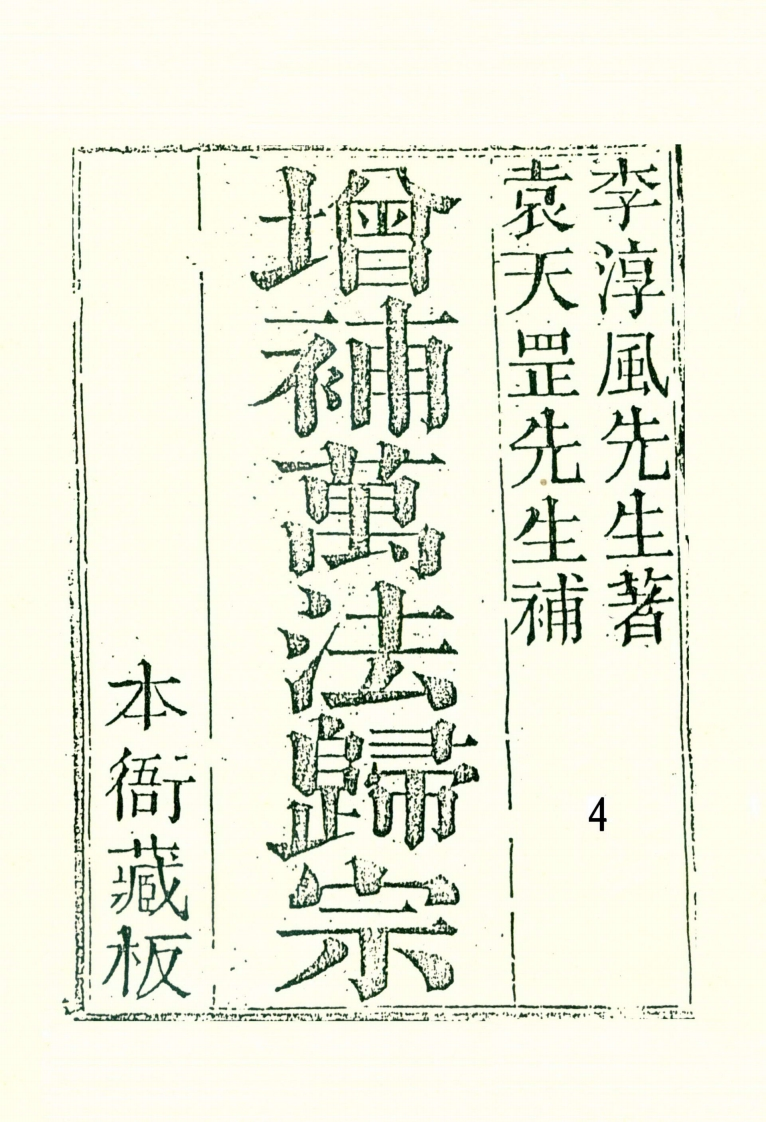 李淳風先生著
袁天罡先生補
增補萬法歸宗
本衙藏板
4